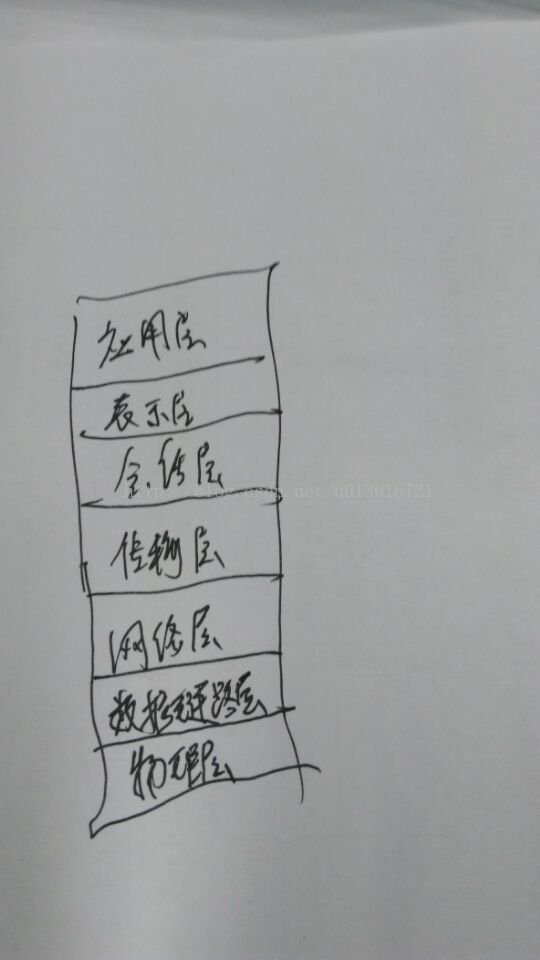 应用层
表示层
会话层
http://blog.csdn.net/u013018721
传输层
网络层
数据链路层
物理层